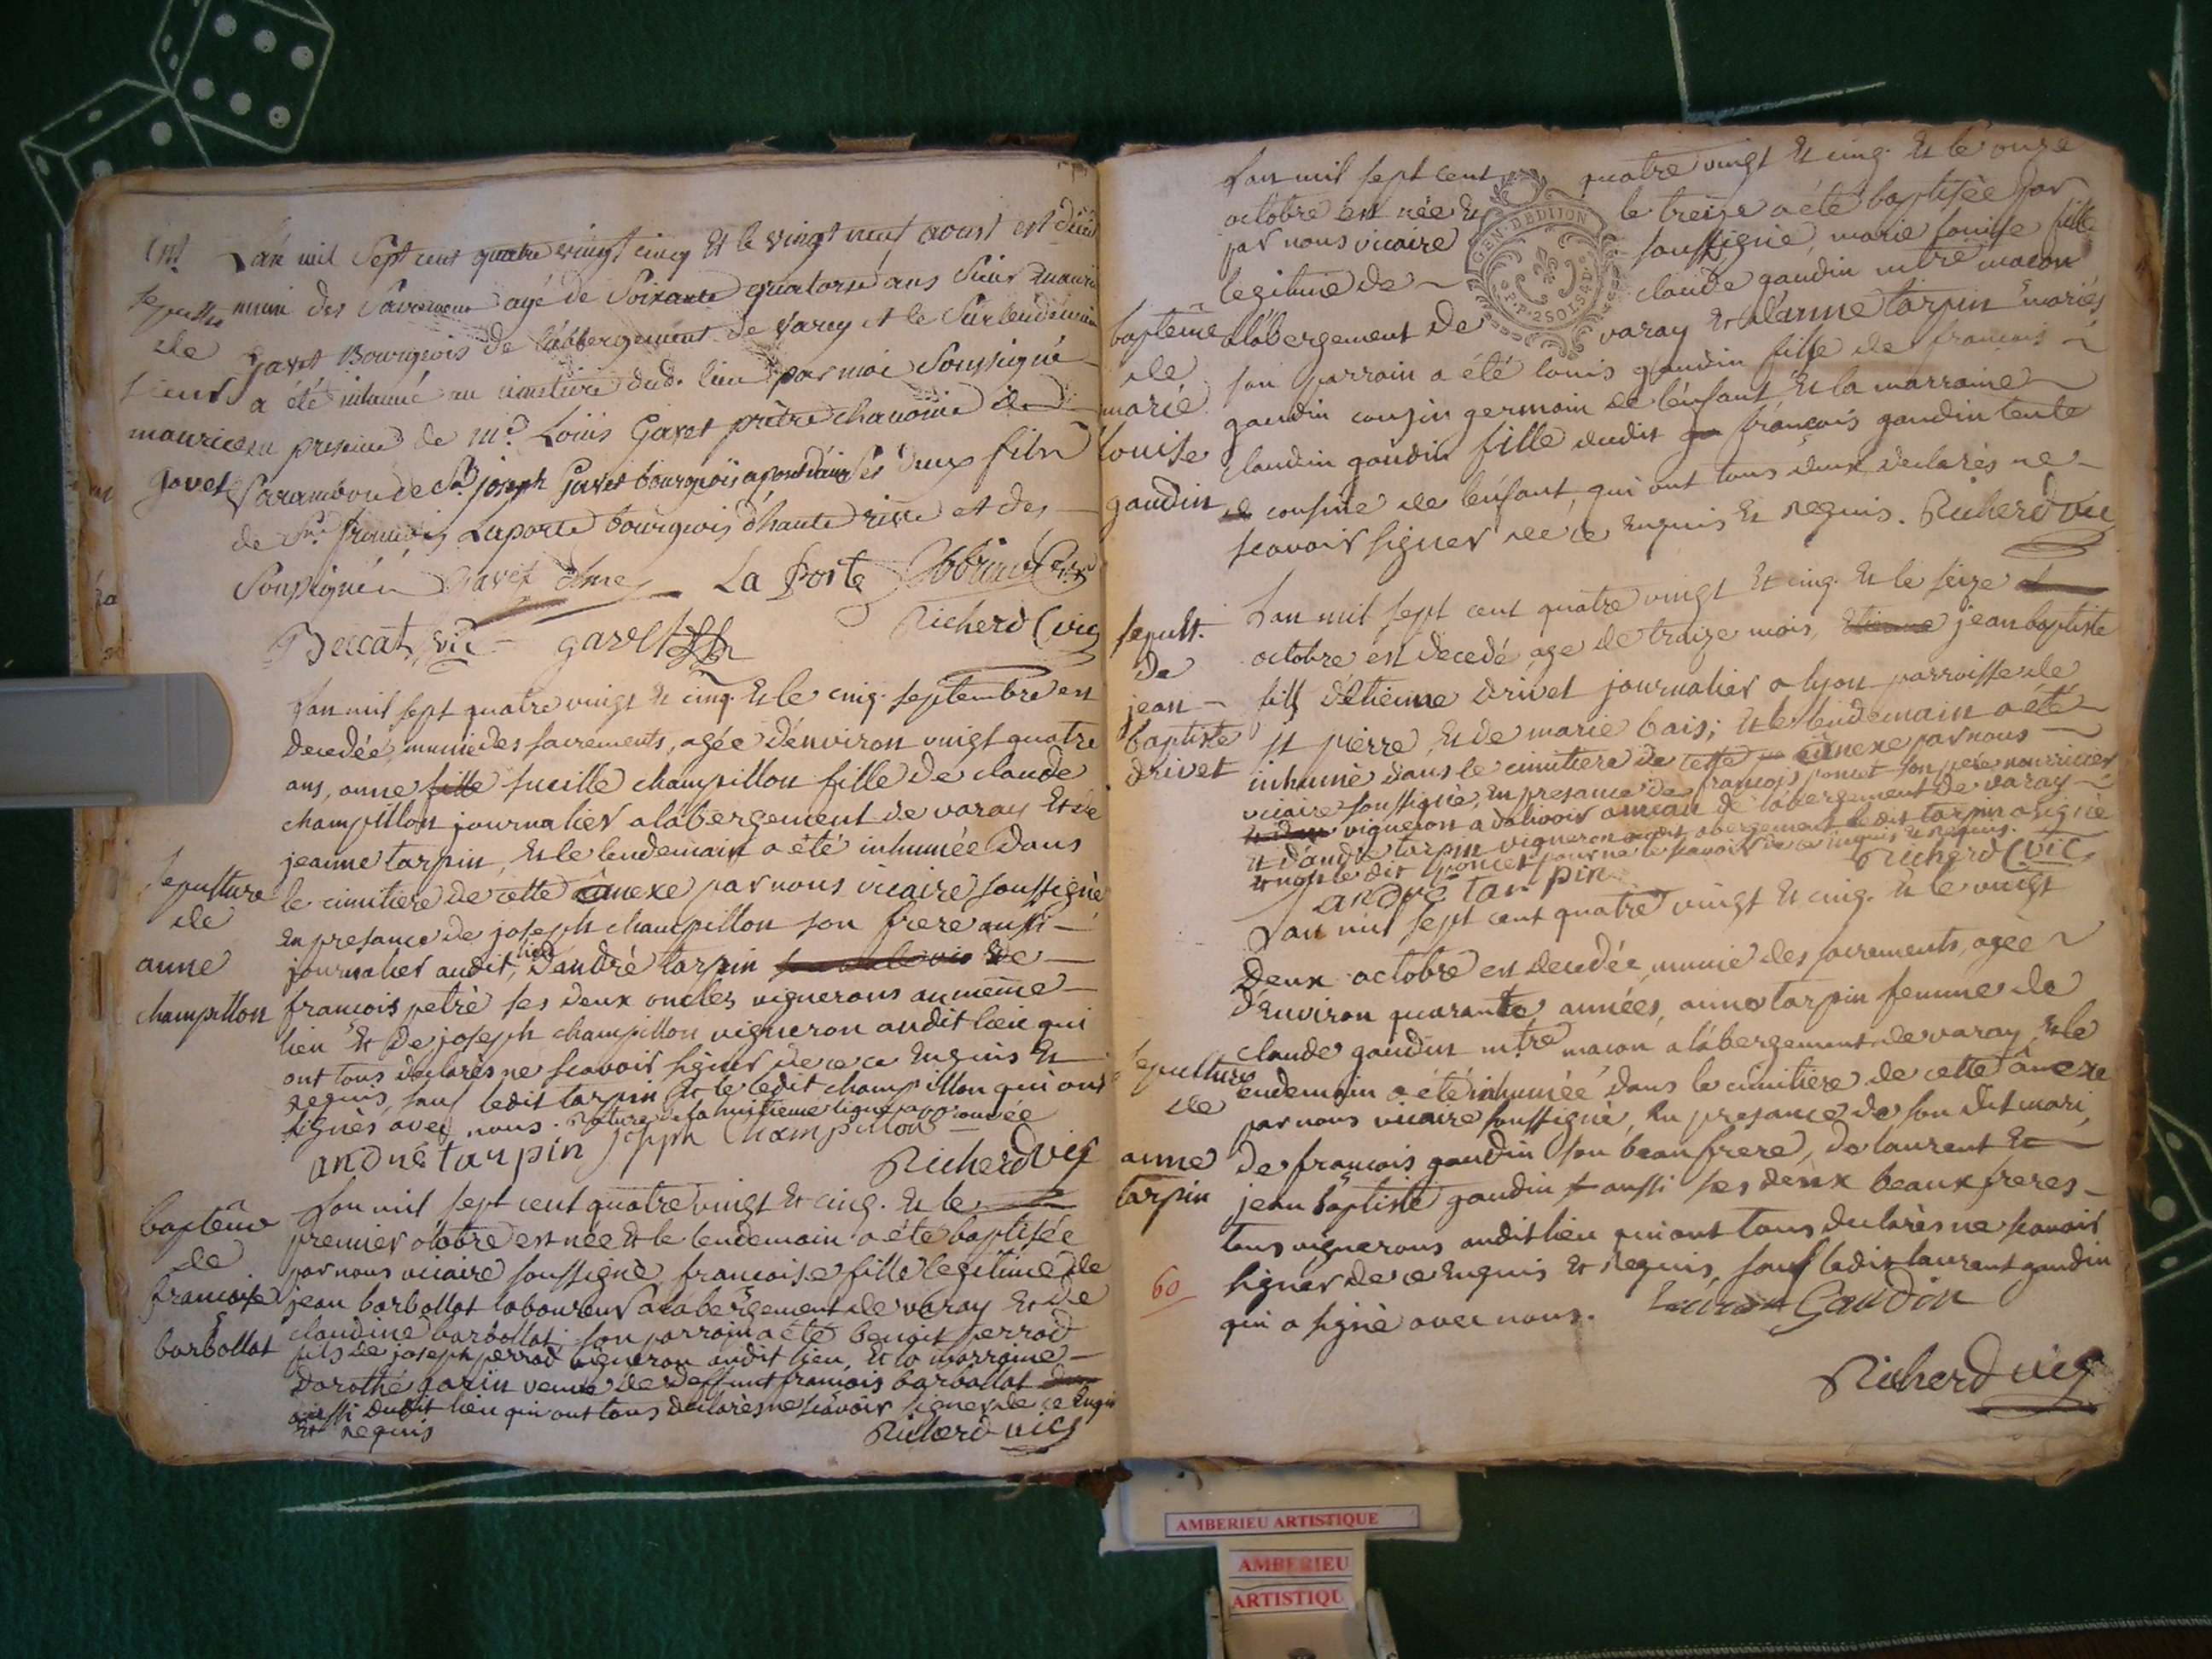 Lan mil Sept cent quatre vingt cinq Et le vingt neuf aoust est décédé
muni des Sacremens agé de Soixante quatorse ans Sieur maurice
Gavet Bourgeois de l'abbergement de Varey et le Surlendemain
a été inhumé au cimetiere dud. lieu par moi Soussigné
en presence de Mre Louis Gavet prêtre chanoine de
Varambon de Sr. joseph Gavet bourgeois a pont d'ain Ses deux fils
de Sr. francois Laporte bourgeois d'hauterive et des
Soussignés Gavet chne La Porte
Beccat vic gavet Richerd vic
sepulture
de
Sieur
maurice
gavet
Lan mil sept quatre vingt et cinq. Et le cinq. septembre est
decedée, munie des sacrements, agée d'environ vingt quatre
ans, anne fille sueille champillon fille de claude
champillon journalier a labergement de varay Et de
jeanne tarpin, Et le lendemain a été inhumée dans
le cimitiere de cette anexe par nous vicaire soussignè
En presance de joseph champillon son frere aussi
journalier audit lieu, D'andrè tarpin
francois petrè ses deux oncles vignerons au meme
lieu Et de joseph champillon vigneron audit lieu qui
ont tous declarès ne scavoir signer de ce Enquis Et
requis, sauf ledit tarpin Et le ledit champillon qui ont
signès avec nous. Rature de la huitieme ligne approuvée
andré tarpin joseph Champillon
Richerd vic
sepulture
de
anne
champillon
Lan mil sept cent quatre vingt Et cinq. Et le
premier octobre est née Et le lendemain a été baptisée
par nous vicaire soussignè, francoise fille legitime de
jean barbollat laboureur a labergement de varay Et de
claudine barbollat; son parrain a été benoit perrod
fils de joseph perrod vigneron audit lieu, Et la marraine
Dorothé gavin veuve de deffunt francois barbollat
aussi dudit lieu qui ont tous declarès ne scavoir signer de ce Enquis
Et requis
Richerd vic
baptême
de
francoise
barbollat
Lan mil sept cent quatre vingt Et cinq. Et le onze
octobre est née Et le treize a été baptisée par
par nous vicaire soussignè, marie louise fille
legitime de claude gaudin mtre macon
a labergement de varay Et d'anne tarpin mariés
son parrain a été louis gaudin fils de francois
gaudin cousin germain de l'enfant Et la marraine
claudin gaudin fille dudit francois gaudin tente
cousine de l'enfant, qui ont tous deux declarès ne
scavoir signer de ce Enquis Et requis. Richerd vic
GEN. DE DIJON
baptême
de
marie
louise
gaudin
Lan mil sept cent quatre vingt Et cinq. Et le seize
octobre est decedé, age de traize mois, Etienne jean baptiste
fils d'Etienne drivet journalier a lyon parroisse de
st pierre, Et de marie bais; Et le lendemain a été
inhumè dans le cimitiere de cette anexe par nous
vicaire soussignè, En presance de francois poncet son pere nourricier
vigneron a dalivoir ameau de labergement de varay
Et d'andre tarpin vigneron audit abergement ledit tarpin a signè
Et non le dit poncet pour ne le scavoir de ce enquis Et requis.
andre tarpin Richerd vic
sepult.
de
jean
baptiste
drivet
Lan mil sept cent quatre vingt Et cinq. Et le vingt
Deux octobre est decedée, munie des sacrements, agee
d'Environ quarante années, anne tarpin femme de
claude gaudin mtre macon a labergement de varay, Et le
lendemain a été inhumée dans le cimitiere de cette anexe
par nous vicaire soussignè, En presance de son dit mari,
de francois gaudin son beau frere, de laurent Et
jean baptiste gaudin aussi ses deux beaux freres
tous vignerons audit lieu qui ont tous declarès ne scavoir
signer de ce Enquis Et requis, sauf ledit laurent gaudin
qui a signè avec nous. Laurent Gaudin
Richerd vic
sepulture
de
anne
tarpin
60
AMBERIEU ARTISTIQUE
AMBERIEU
ARTISTIQU